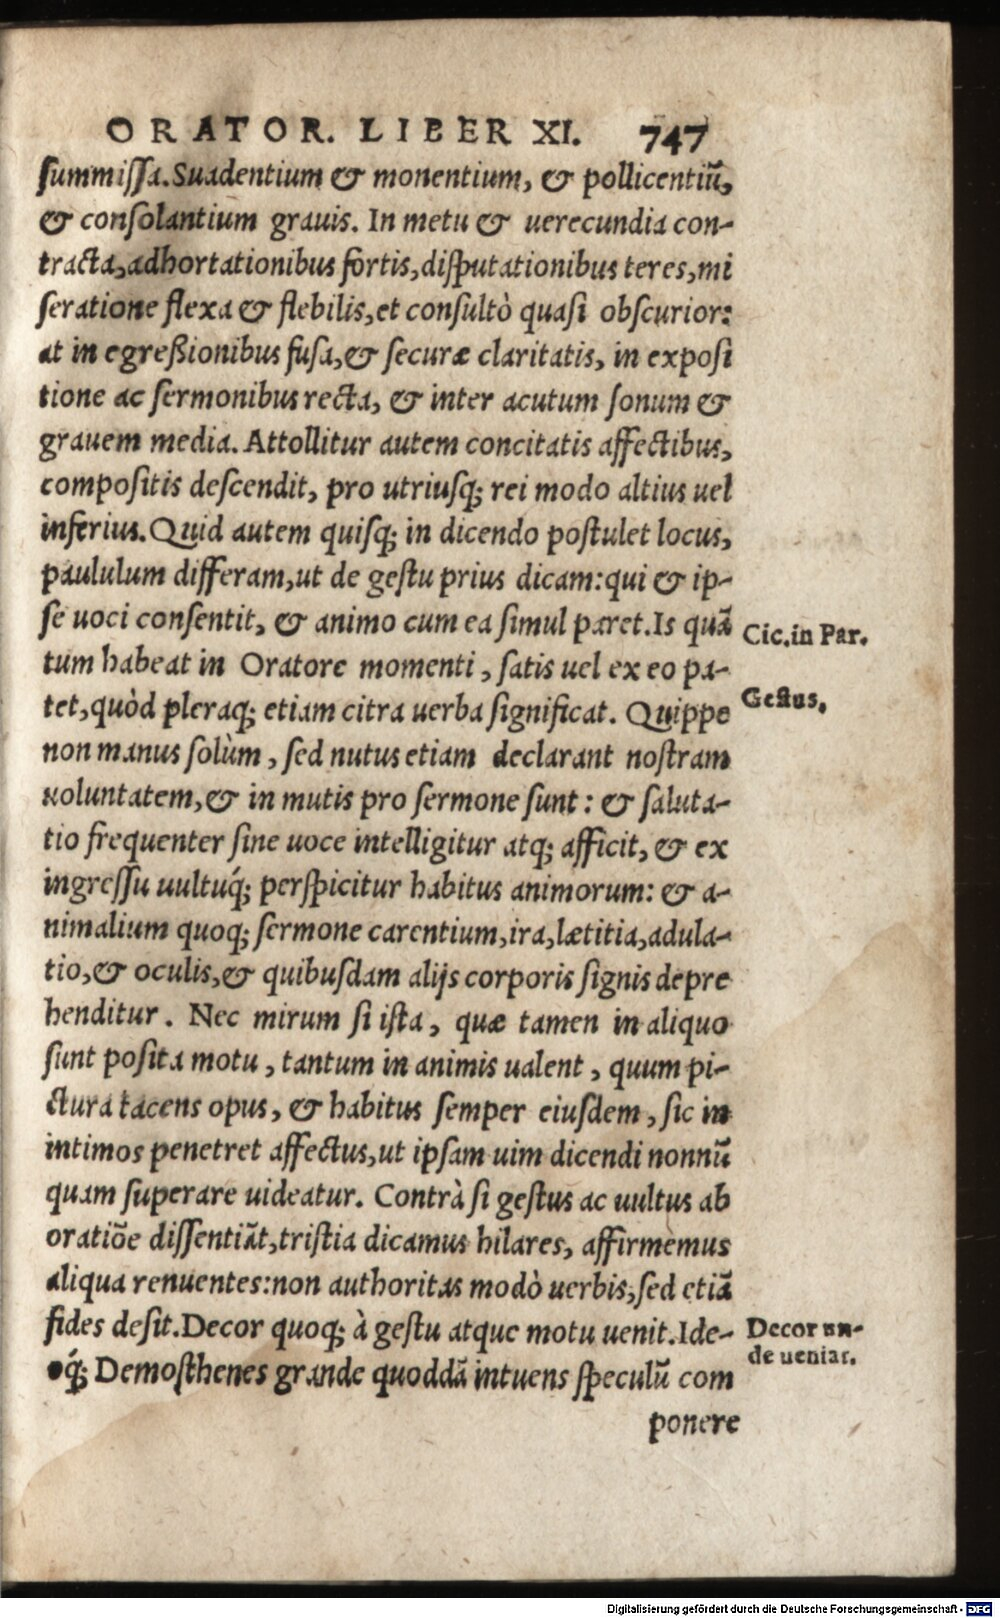 ORATOR. LIBER XI. 747
summissa. Suadentium & monentium, & pollicentiũ,
& consolantium grauis. In metu & uerecundia con-
tracta, adhortationibus fortis, disputationibus teres, mi
seratione flexa & flebilis, et consultò quasi obscurior:
at in egreßionibus fusa, & securæ claritatis, in exposi
tione ac sermonibus recta, & inter acutum sonum &
grauem media. Attollitur autem concitatis affectibus,
compositis descendit, pro utriusq; rei modo altius uel
inferius. Quid autem quisq; in dicendo postulet locus,
paululum differam, ut de gestu prius dicam: qui & ip-
se uoci consentit, & animo cum ea simul paret. Is quã
Cic. in Par.
tum habeat in Oratore momenti, satis uel ex eo pa-
tet, quòd pleraq; etiam citra uerba significat. Quippe
Gestus.
non manus solùm, sed nutus etiam declarant nostram
uoluntatem, & in mutis pro sermone sunt: & saluta-
tio frequenter sine uoce intelligitur atq; afficit, & ex
ingressu uultuq́; perspicitur habitus animorum: & a-
nimalium quoq; sermone carentium, ira, lætitia, adula-
tio, & oculis, & quibusdam alijs corporis signis depre
henditur. Nec mirum si ista, quæ tamen in aliquo
sunt posita motu, tantum in animis ualent, quum pi-
ctura tacens opus, & habitus semper eiusdem, sic in
intimos penetret affectus, ut ipsam uim dicendi nonnũ
quam superare uideatur. Contrà si gestus ac uultus ab
oratiõe dissentiãt, tristia dicamus hilares, affirmemus
aliqua renuentes: non authoritas modò uerbis, sed etiã
fides desit. Decor quoq; à gestu atque motu uenit. Ide-
Decor un-
de ueniat.
oq́; Demosthenes grande quoddã intuens speculũ com
ponere
Digitalisierung gefördert durch die Deutsche Forschungsgemeinschaft - DFG